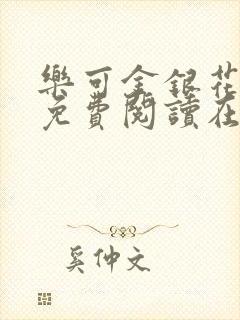 樂可金銀花
免費閱讀在
奚仲文